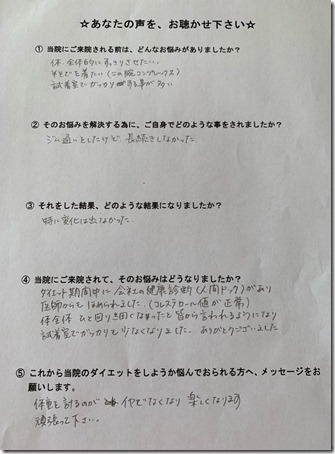 ☆あなたの声を、お聴かせ下さい☆
① 当院にご来院される前は、どんなお悩みがありましたか？
体全体的にすっきりさせたい…
半そでを着たい（この腕コンプレックス）
試着室でガッカリする事が多い
② そのお悩みを解決する為に、ご自身でどのような事をされましたか？
ジム通いとしたけど、長続きしなかった
③ それをした結果、どのような結果になりましたか？
特に変化は出なかった
④ 当院にご来院されて、そのお悩みはどうなりましたか？
ダイエット期間中に会社の健康診断（人間ドック）があり
医師からもほめられました。（コレステロール値が正常）
体全体 ひと回り小さくなったと皆から言われるようになり
試着室でガッカリも少なくなりました。ありがとうございました
⑤ これから当院のダイエットをしようか悩んでおられる方へ、メッセージをお
願いします。
体重を計るのが イヤでなくなり 楽しくなります
頑張って下さい。